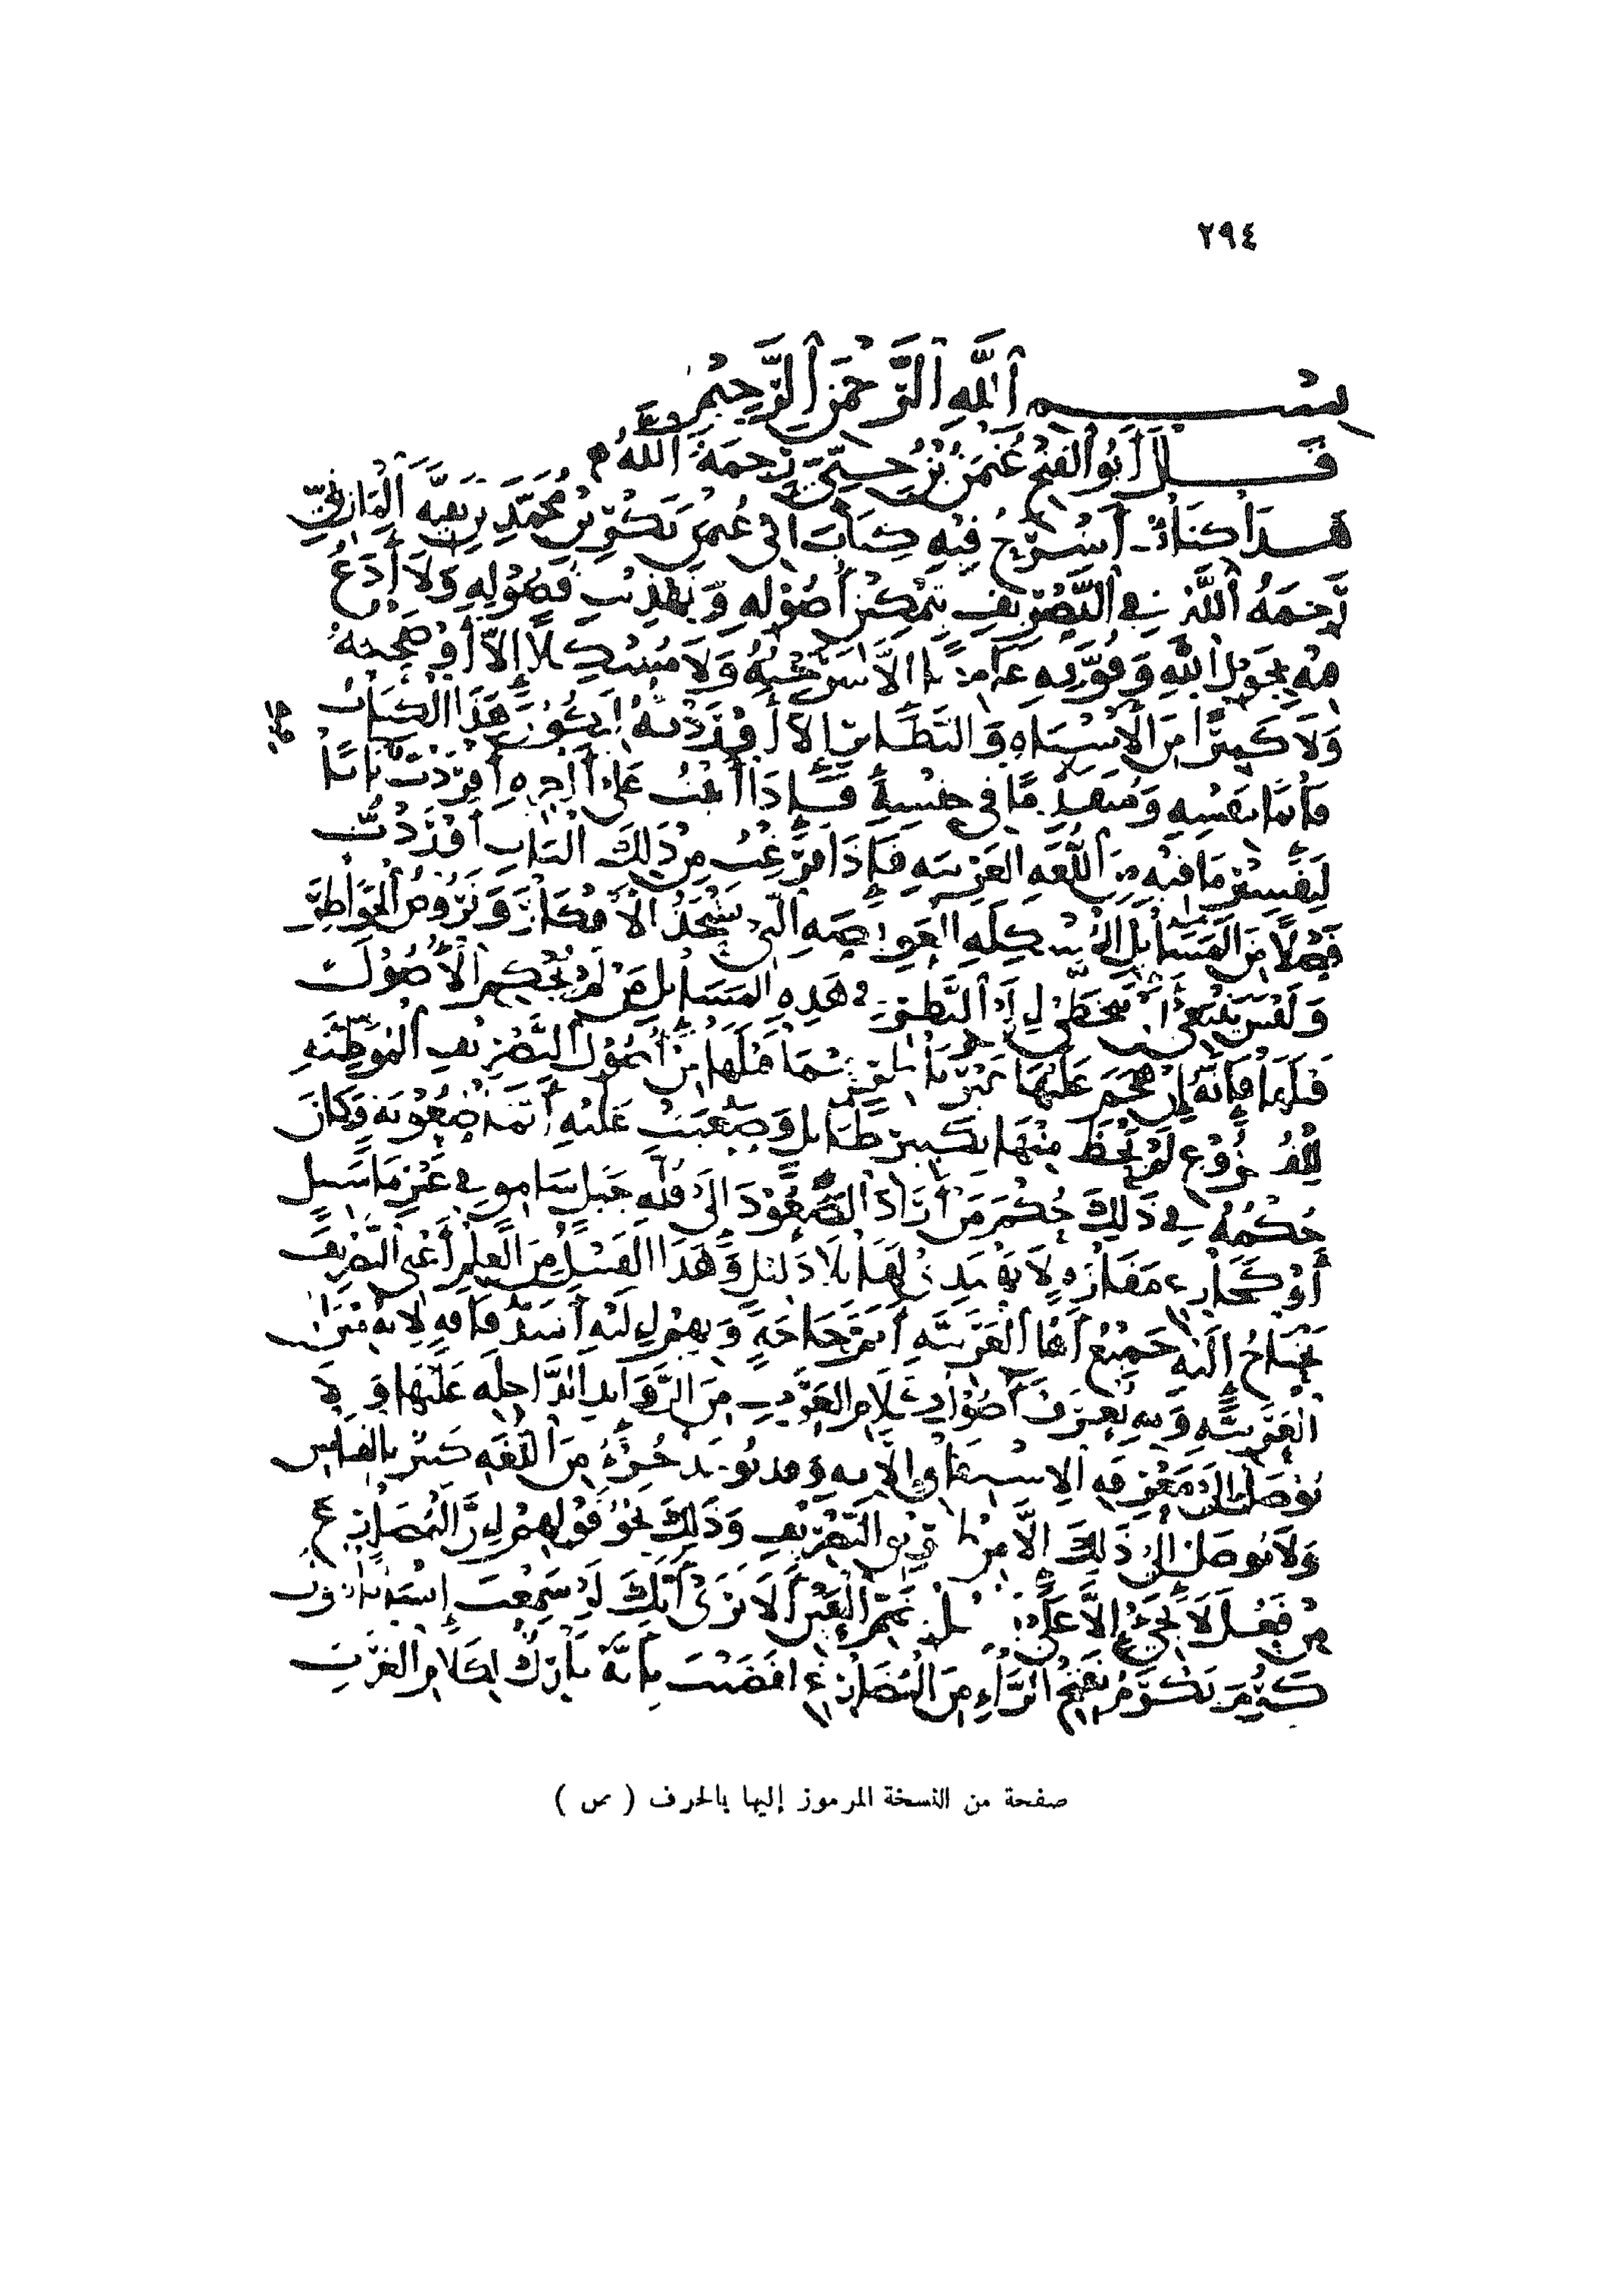 ٢٩٤
بسم ٱلله ٱلرَّحْمَنِ ٱلرَّحِيْمِ
قَالَ أَبُو ٱلفَتْحِ عُثْمَنُ بْنُ جِنِّي رَحِمَهُ ٱللَّهُ
هَذَا كِتَابٌ أَشْرَحُ فِيْهِ كِتَابَ أَبِي عُثْمَنَ بَكْرِ بْنِ مُحَمَّدِ بْنِ بَقِيَّةَ ٱلْمَازِنِيِّ
رَحِمَهُ ٱللَّهُ فِي ٱلتَّصْرِيفِ بِتَمْكِيْنِ أُصُوْلِهِ وَتَهْذِيْبِ فُصُوْلِهِ وَلَا أَدَعُ
فِيْهِ بِحَوْلِ ٱللَّهِ وَقُوَّتِهِ غَامِضًا إِلَّا شَرَحْتُهُ وَلَا مُشْكِلًا إِلَّا أَوْضَحْتُهُ
وَلَا كَثِيْرًا مِنَ ٱلْأَشْبَاهِ وَالنَّظَائِرِ إِلَّا أَوْرَدْتُهُ لِيَكُوْنَ هَذَا الْكِتَابُ
قَائِمًا بِنَفْسِهِ وَمُتَقَدِّمًا فِي جِنْسِهِ فَإِذَا أَتَيْتُ عَلَى آخِرِهِ أَفْرَدْتُ بَابًا
لِتَفْسِيْرِ مَا فِيْهِ مِنَ ٱللُّغَةِ الْغَرِيْبَةِ فَإِذَا فَرَغْتُ مِنْ ذَلِكَ الْبَابِ أَوْرَدْتُ
فَصْلًا مِنَ الْمَسَائِلِ الْمُشْكِلَةِ الْعَوِيْصَةِ ٱلَّتِي تَشْحَذُ الْأَفْكَارَ وَتَرُوْضُ ٱلْخَوَاطِرَ
وَلَيْسَ يَنْبَغِي أَنْ يَتَخَطَّى إِلَى ٱلنَّظَرِ فِي هَذِهِ الْمَسَائِلِ مَنْ لَمْ يُحْكِمِ ٱلْأُصُوْلَ
قَبْلَهَا فَإِنَّهُ إِنْ هَجَمَ عَلَيْهَا غَيْرَ نَاظِرٍ فِيْمَا قَبْلَهَا مِنْ أُصُوْلِ ٱلتَّصْرِيْفِ ٱلْمُوَطِّئَةِ
لِلْفُرُوْعِ لَمْ يَحْظَ مِنْهَا بِكَبِيْرِ طَائِلٍ وَصَعُبَتْ عَلَيْهِ أَيَّمَا صُعُوْبَةٍ وَكَانَ
حُكْمُهُ فِي ذَلِكَ حُكْمَ مَنْ أَرَادَ الصُّعُوْدَ إِلَى قُلَّةِ جَبَلٍ سَامِقٍ فِي غَيْرِ مَا سَبِيْلٍ
أَوْ كَجَازِعِ مَفَازَةٍ لَا يَهْتَدِي لَهَا بِلَا دَلِيْلٍ وَهَذَا الْقَبِيْلُ مِنَ الْعِلْمِ أَعْنِي التَّصْرِيْفَ
يَحْتَاجُ إِلَيْهِ جَمِيْعُ أَهْلِ ٱلْعَرَبِيَّةِ أَتَمَّ حَاجَةٍ وَبِهِمْ إِلَيْهِ أَشَدُّ فَاقَةٍ لِأَنَّهُ مِيْزَانُ
ٱلْعَرَبِيَّةِ وَبِهِ تُعْرَفُ أُصُوْلُ كَلَامِ الْعَرَبِ مِنَ الزَّوَائِدِ الدَّاخِلَةِ عَلَيْهَا وَلَا
يُوْصَلُ إِلَى مَعْرِفَةِ الِاشْتِقَاقِ إِلَّا بِهِ وَقَدْ يُؤْخَذُ جُزْءٌ مِنَ ٱللُّغَةِ كَبِيْرٌ بِالْقِيَاسِ
وَلَا يُوْصَلُ إِلَى ذَلِكَ إِلَّا مِنْ طَرِيْقِ التَّصْرِيْفِ وَذَلِكَ نَحْوُ قَوْلِهِمْ إِنَّ الْمُضَارِعَ
مِنْ فَعُلَ لَا يَجِيْءُ إِلَّا عَلَى يَفْعُلُ بِضَمِّ الْعَيْنِ أَلَا تَرَى أَنَّكَ لَوْ سَمِعْتَ إِنْسَانًا يَقُوْلُ
كَرُمَ يَكْرَمُ بِفَتْحِ الرَّاءِ مِنَ الْمُضَارِعِ لَقَضَيْتَ بِأَنَّهُ تَارِكٌ لِكَلَامِ الْعَرَبِ
صفحة من النسخة المرموز إليها بالحرف ( س )